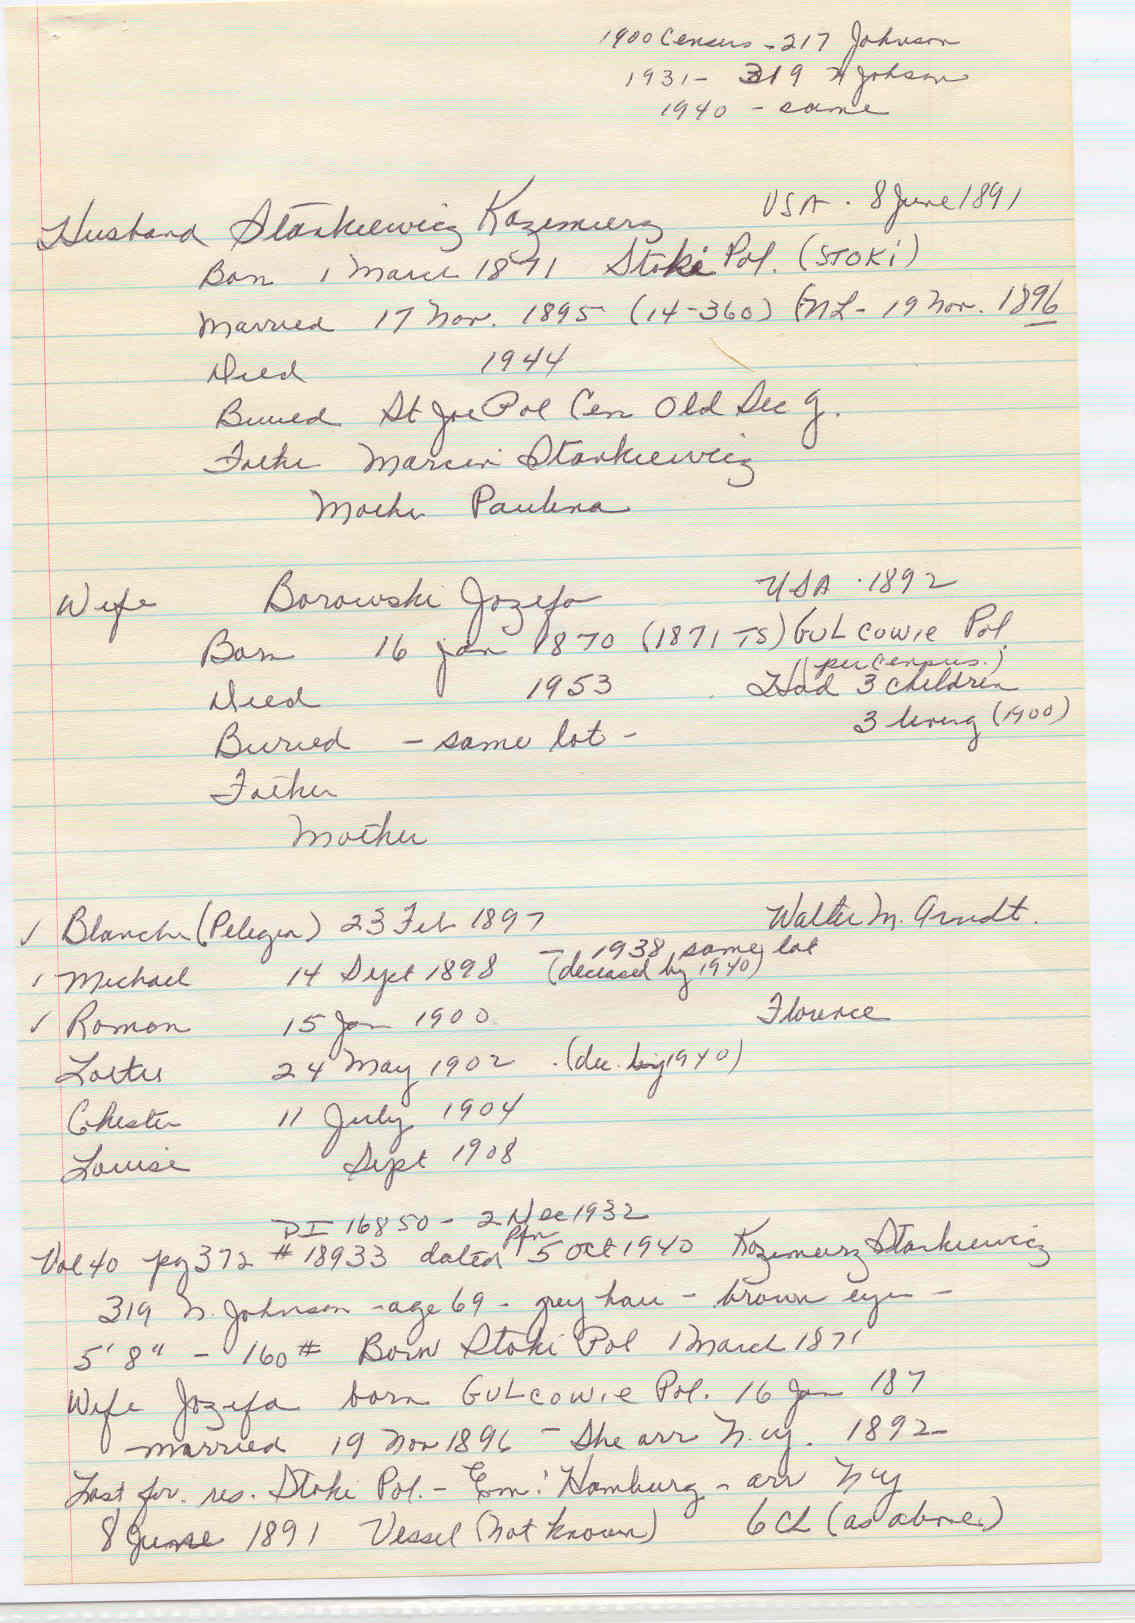 1900 Census - 217 Johnson
1931 - 319 N Johson
1940 - same
USA . 8 June 1891
Husband Stankiewicz Kazimierz
Born 1 March 1871 Stoki Pol. (STOKi)
Married 17 Nov. 1895 (14-360) (NL - 19 Nov. 1896
Died 1944
Buried St Joe Pol Cem Old Sec g.
Father Marcin Stankiewicz
Mother Paulina
Wife Borowski Jozefa USA . 1892
Born 16 Jan 1870 (1871 TS) GULCOWIE Pol.
(per Census.)
Died 1953 Had 3 children
3 living (1900)
Buried - same lot -
Father
Mother
✓ Blanche (Pelegia) 23 Feb 1897 Walter M. Arndt.
- 1938 same lot
✓ Michael 14 Sept 1898 (deceased by 1940)
✓ Roman 15 Jan 1900 Florence
24 May 1902 . (dec. by 1940)
Chester 11 July 1904
Louise Sept 1908
DI 16850 - 2 Dec 1932
Ptn
Vol 40 pg 372 # 18933 dated 5 Oct 1940 Kazimierz Stankiewicz
319 N. Johnson - age 69 - grey hair - brown eyes -
5' 8" - 160 # Born Stoki Pol 1 March 1871
Wife Jozefa born GULCOWIE Pol. 16 Jan 187
- married 19 Nov 1896 - She arr N.Y. 1892 -
Last for. res. Stoki Pol. - Em: Hamburg - arr NY
8 June 1891 Vessel (not known) 6 Ch (as above)